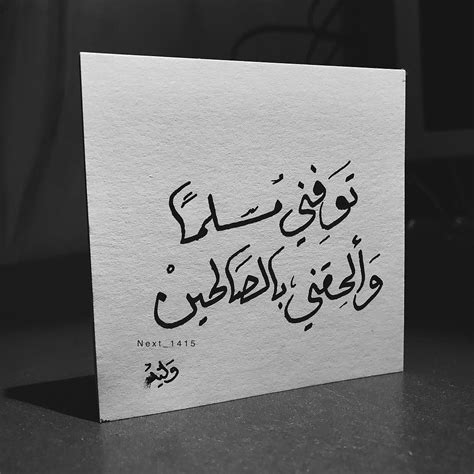 تَوَفَّنِي مُسْلِمًا
وَأَلحِقنِي بِالصَالحِينْ
Next_1415
وَليد